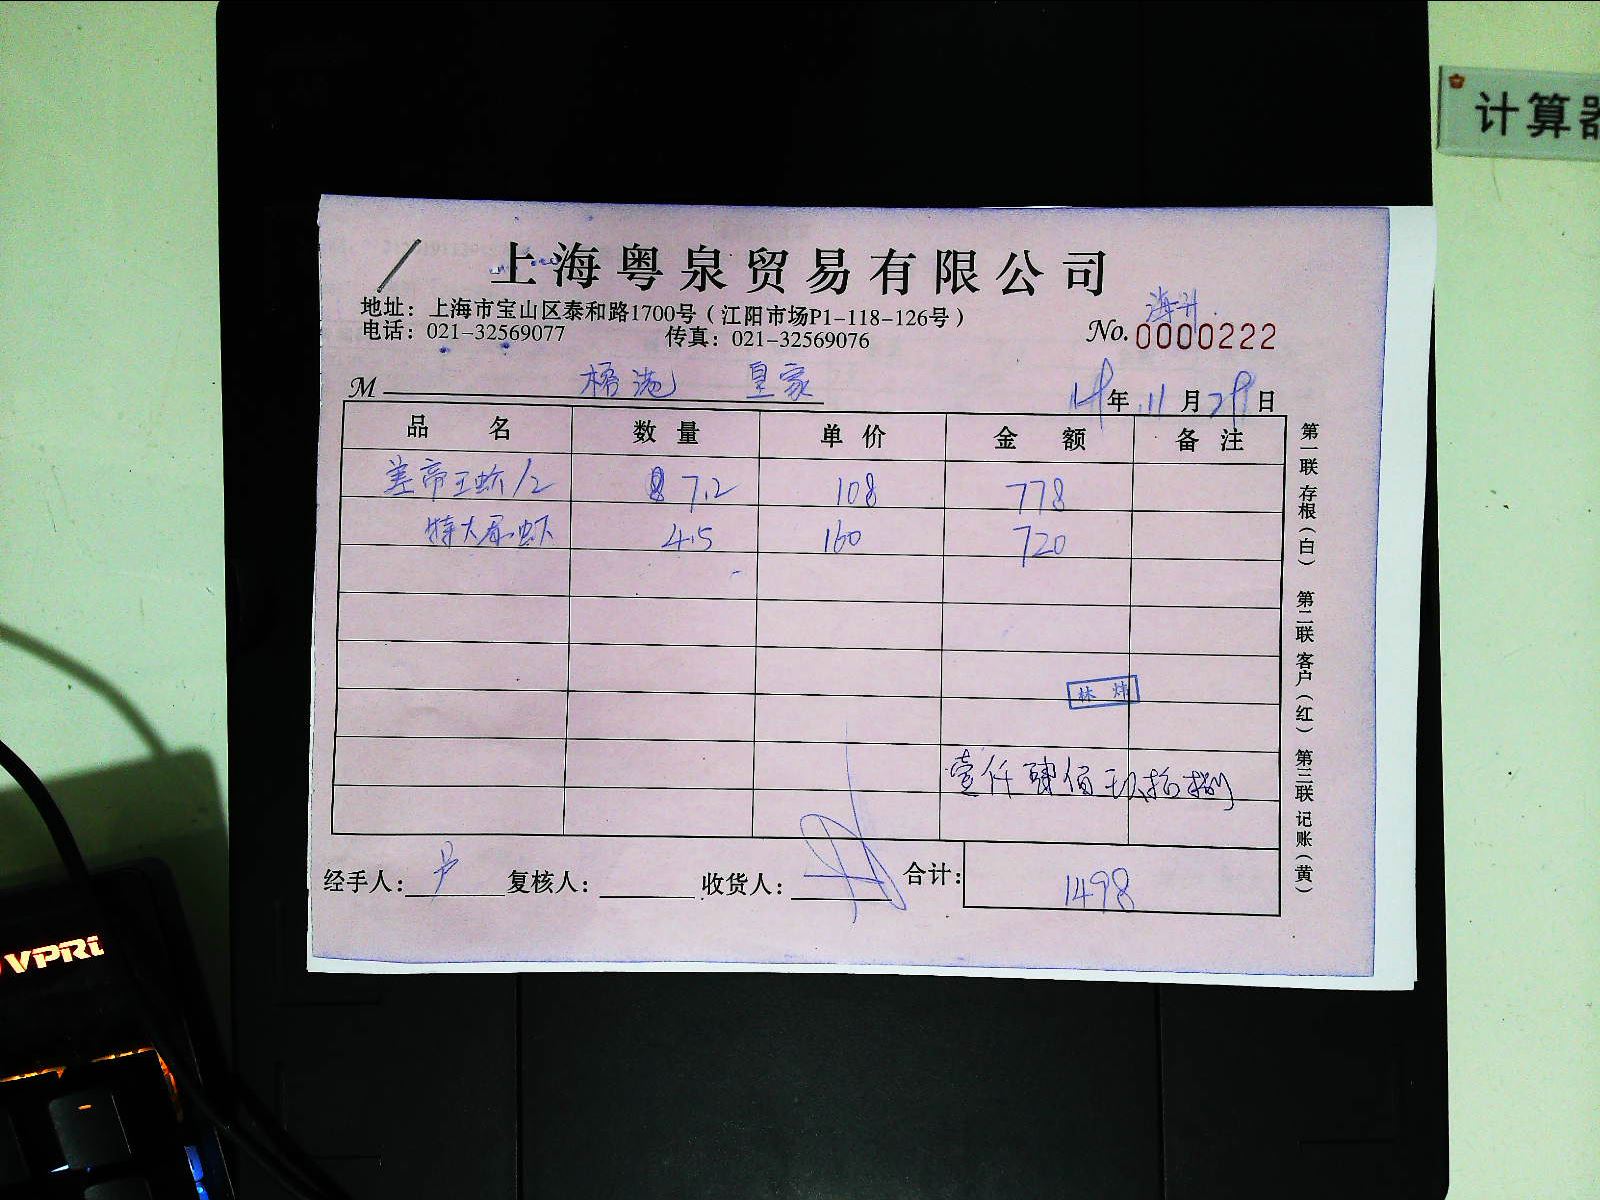 计算器
上海粤泉贸易有限公司
地址：上海市宝山区泰和路1700号（江阳市场P1-118-126号）
电话：021-32569077 传真：021-32569076
No. 0000222
M 皇家
年 11 月 29 日
品 名 数 量 单 价 金 额 备 注
帝王 /2 7.2 108 778
特大 虾 4.5 160 720
林 炜
壹仟肆佰玖拾捌
经手人： 复核人： 收货人： 合计： 1498
第一联 存根（白） 第二联 客户（红） 第三联 记账（黄）
VPRO